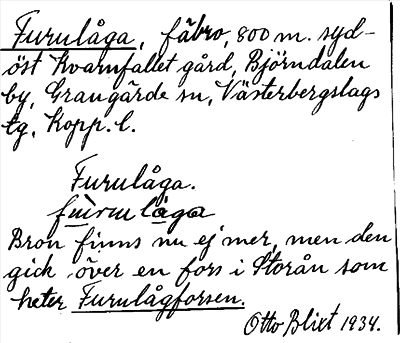 Furulåga, fäbro, 800 m. syd-
öst Kvarnfallet gård, Björndalen
by, Grangärde sn, Västerbergslags
tg, Kopp. l.
Furulåga.
Bron finns nu ej mer, men den
gick över en fors i Storån som
heter Furulågforsen.
Otto Blixt 1934.